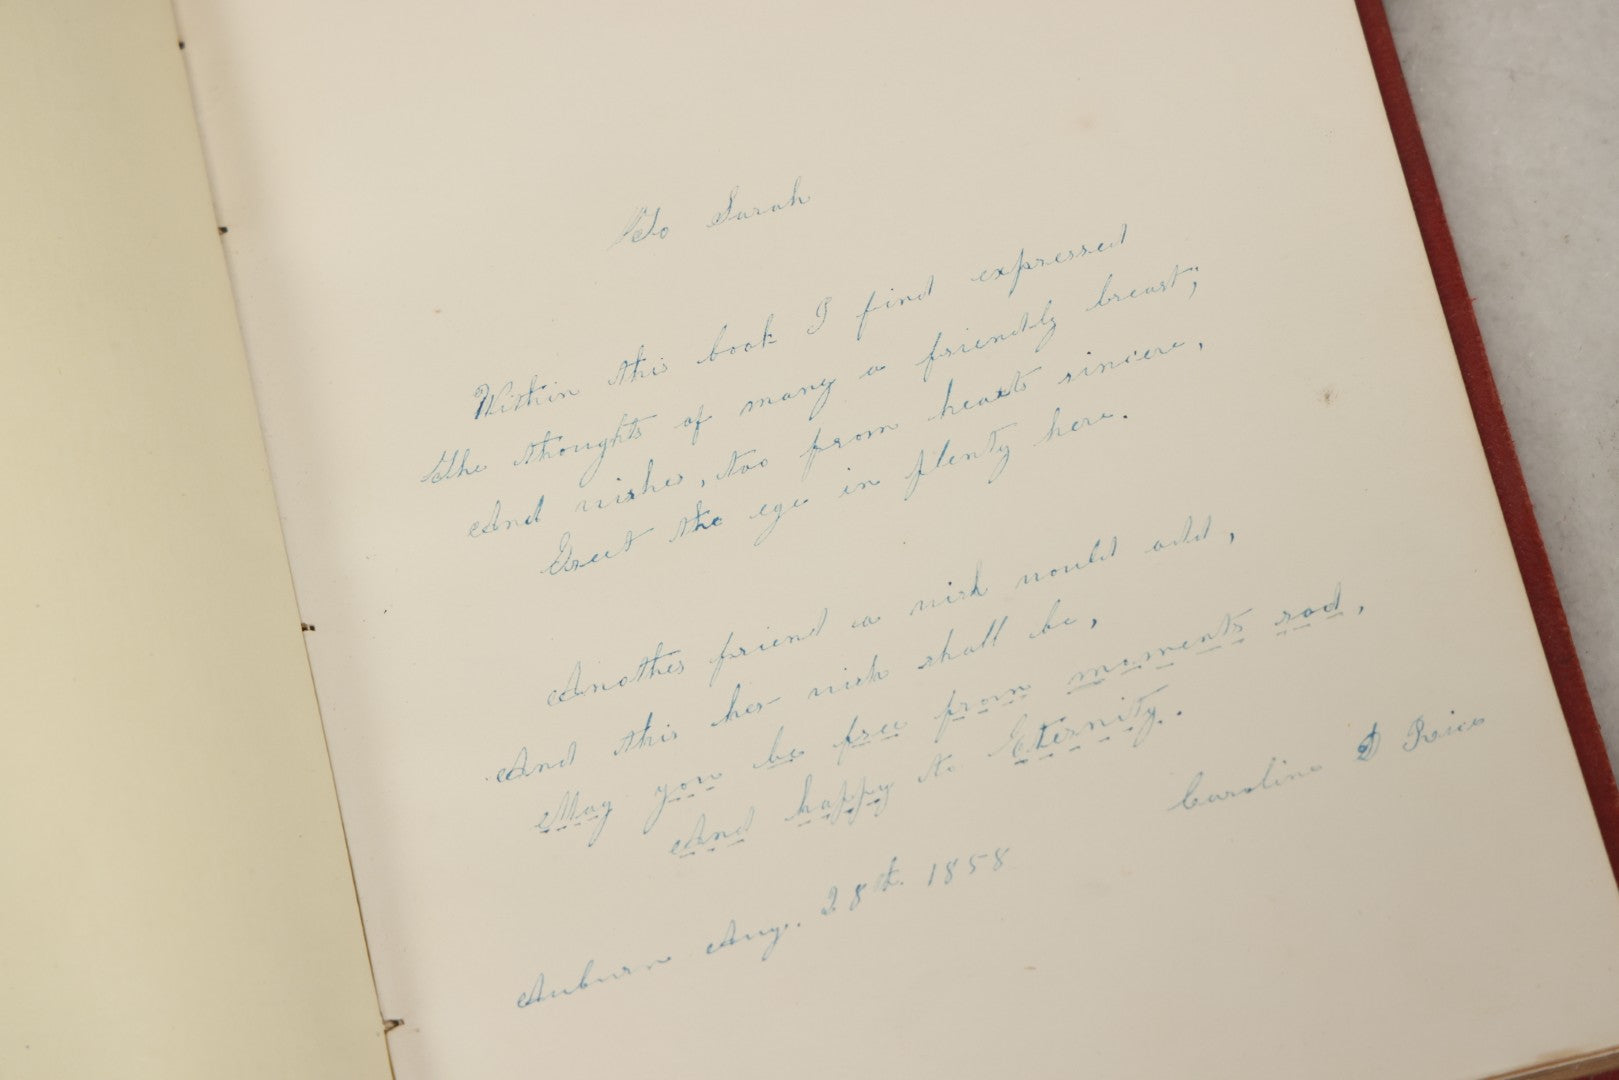 To Sarah
Within this book I find expressed
The thoughts of many a friendly breast;
And wishes, too from hearts sincere,
Greet the eye in plenty here.
Another friend a wish would add,
And this her wish shall be,
May you be free from moments sad,
And happy to Eternity.
Caroline D Rice
Auburn Aug. 28th. 1858